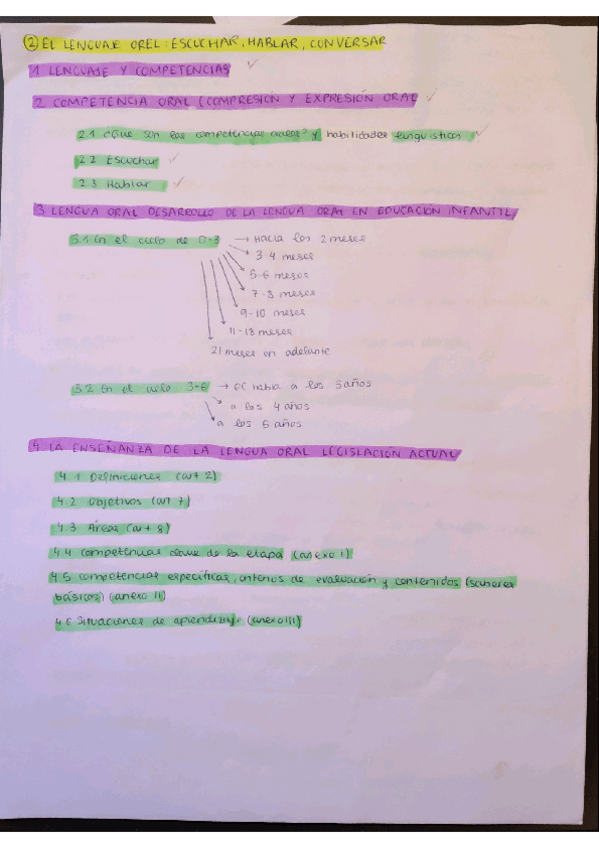 ② EL LENGUAJE OREL: ESCUCHAR, HABLAR, CONVERSAR
1 LENGUAJE Y COMPETENCIAS ✓
2 COMPETENCIA ORAL (COMPRESIÓN Y EXPRESIÓN ORAL ✓
2.1 ¿Que son las competencias orales? y habilidades linguisticas ✓
2.2 Escuchar ✓
2.3 Hablar ✓
3 LENGUA ORAL DESARROLLO DE LA LENGUA ORAL EN EDUCACION INFANTIL
3.1 En el ciclo de 0-3 → Hacia los 2 meses
3-4 meses
5-6 meses
7-8 meses
9-10 meses
11-18 meses
21 meses en adelante
3.2 En el ciclo 3-6 → El habla a los 3 años
a los 4 años
a los 5 años
4 LA ENSEÑANZA DE LA LENGUA ORAL LEGISLACIÓN ACTUAL
4.1 Definiciones (art 2)
4.2 Objetivos (art 7)
4.3 Áreas (art 8)
4.4 competencias clave de la etapa (anexo I)
4.5 competencias especificas, criterios de evaluación y contenidos (saberes
básicos) (anexo II)
4.6 Situaciones de aprendizaje (anexo III)